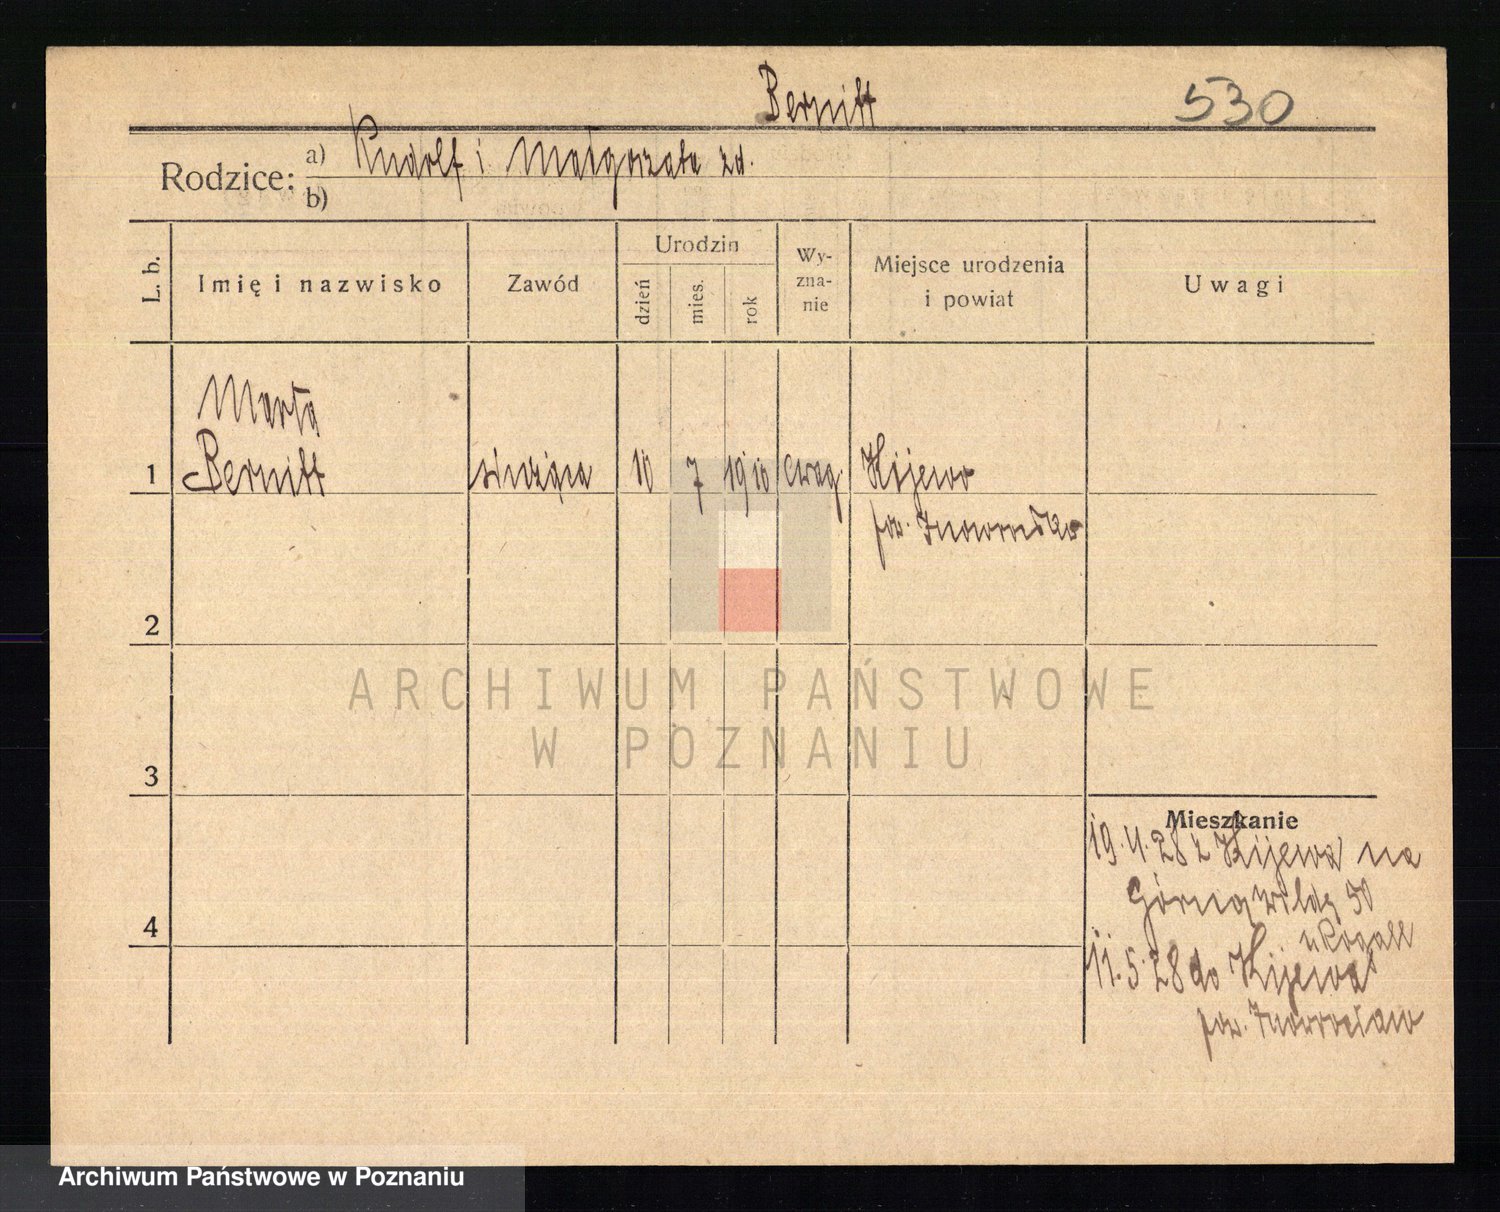 Bernitt 530
Rodzice: a) Rudolf i Małgorzata zd.
b)
L. b. Imię i nazwisko Zawód Urodzin dzień mies. rok Wyznanie Miejsce urodzenia i powiat Uwagi
Marta
1 Bernitt służąca 10 7 1910 ewag. Kijewo
pow. Inowrocław
2
ARCHIWUM PAŃSTWOWE
W POZNANIU
3
Mieszkanie
19.4.28 z Kijewa na
Górną Wildę 50
4
11.5.28 do Kijewa
pow. Inowrocław
Archiwum Państwowe w Poznaniu